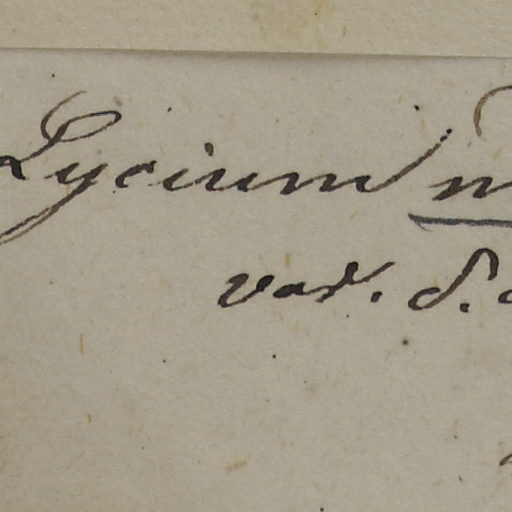 Lycium
var. δ.